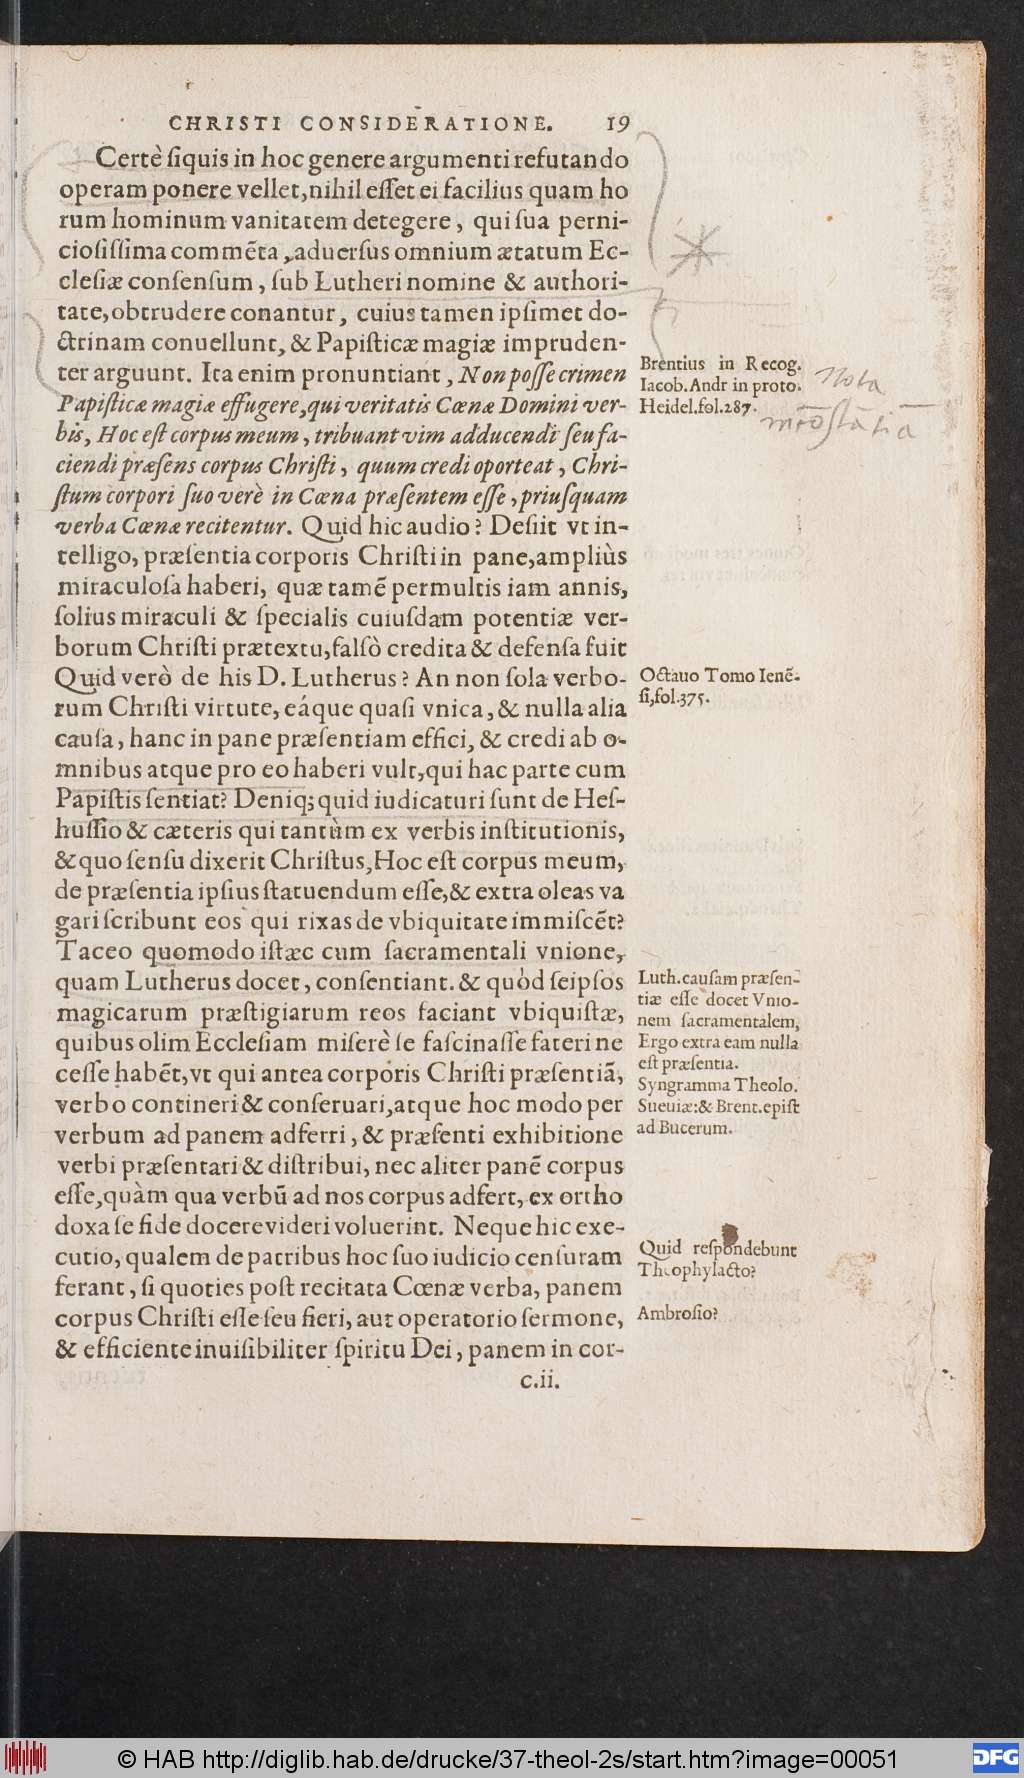 CHRISTI CONSIDERATIONE. 19
Certè ſiquis in hoc genere argumenti refutando
operam ponere vellet, nihil eſſet ei facilius quam ho
rum hominum vanitatem detegere, qui ſua perni-
cioſiſſima commẽta, aduerſus omnium ætatum Ec-
cleſiæ conſenſum, ſub Lutheri nomine & authori-
tate, obtrudere conantur, cuius tamen ipſimet do-
ctrinam conuellunt, & Papiſticæ magiæ impruden-
ter arguunt. Ita enim pronuntiant, Non poſſe crimen
Papiſticæ magiæ effugere, qui veritatis Cœnæ Domini ver-
bis, Hoc eſt corpus meum, tribuant vim adducendi ſeu fa-
ciendi præſens corpus Chriſti, quum credi oporteat, Chri-
ſtum corpori ſuo verè in Cœna præſentem eſſe, priuſquam
verba Cœnæ recitentur. Quid hic audio? Deſiit vt in-
telligo, præſentia corporis Chriſti in pane, ampliùs
miraculoſa haberi, quæ tamẽ permultis iam annis,
ſolius miraculi & ſpecialis cuiuſdam potentiæ ver-
borum Chriſti prætextu, falſò credita & defenſa fuit
Quid verò de his D. Lutherus? An non ſola verbo-
rum Chriſti virtute, eáque quaſi vnica, & nulla alia
cauſa, hanc in pane præſentiam effici, & credi ab o-
mnibus atque pro eo haberi vult, qui hac parte cum
Papiſtis ſentiat? Deniq; quid iudicaturi ſunt de Heſ-
huſſio & cæteris qui tantùm ex verbis inſtitutionis,
& quo ſenſu dixerit Chriſtus, Hoc eſt corpus meum,
de præſentia ipſius ſtatuendum eſſe, & extra oleas va
gari ſcribunt eos qui rixas de vbiquitate immiſcẽt?
Taceo quomodo iſtæc cum ſacramentali vnione,
quam Lutherus docet, conſentiant. & quòd ſeipſos
magicarum præſtigiarum reos faciant vbiquiſtæ,
quibus olim Eccleſiam miſerè ſe faſcinaſſe fateri ne
ceſſe habẽt, vt qui antea corporis Chriſti præſentiã,
verbo contineri & conſeruari, atque hoc modo per
verbum ad panem adferri, & præſenti exhibitione
verbi præſentari & diſtribui, nec aliter panẽ corpus
eſſe, quàm qua verbũ ad nos corpus adfert, ex ortho
doxa ſe fide docere videri voluerint. Neque hic exe-
cutio, qualem de patribus hoc ſuo iudicio cenſuram
ferant, ſi quoties poſt recitata Cœnæ verba, panem
corpus Chriſti eſſe ſeu fieri, aut operatorio ſermone,
& efficiente inuiſibiliter ſpiritu Dei, panem in cor-
c.ii.
Brentius in Recog.
Iacob. Andr in proto.
Heidel. fol. 287.
Nota
Octauo Tomo Ienẽ-
ſi, fol. 375.
Luth. cauſam præſen-
tiæ eſſe docet Vnio-
nem ſacramentalem,
Ergo extra eam nulla
eſt præſentia.
Syngramma Theolo.
Sueuiæ: & Brent. epiſt
ad Bucerum.
Quid reſpondebunt
Theophylacto?
Ambroſio?
© HAB http://diglib.hab.de/drucke/37-theol-2s/start.htm?image=00051
DFG